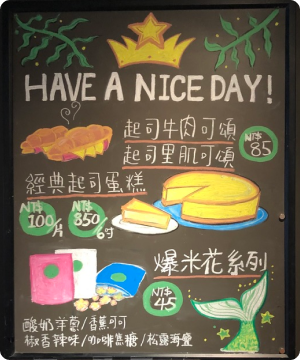 HAVE A NICE DAY!
起司牛肉可頌
起司里肌可頌
NT$
85
經典起司蛋糕
NT$
100/片
NT$
850/6吋
爆米花系列
NT$
45
酸奶洋蔥/香蕉可可
椒香辣味/咖啡焦糖/松露海鹽